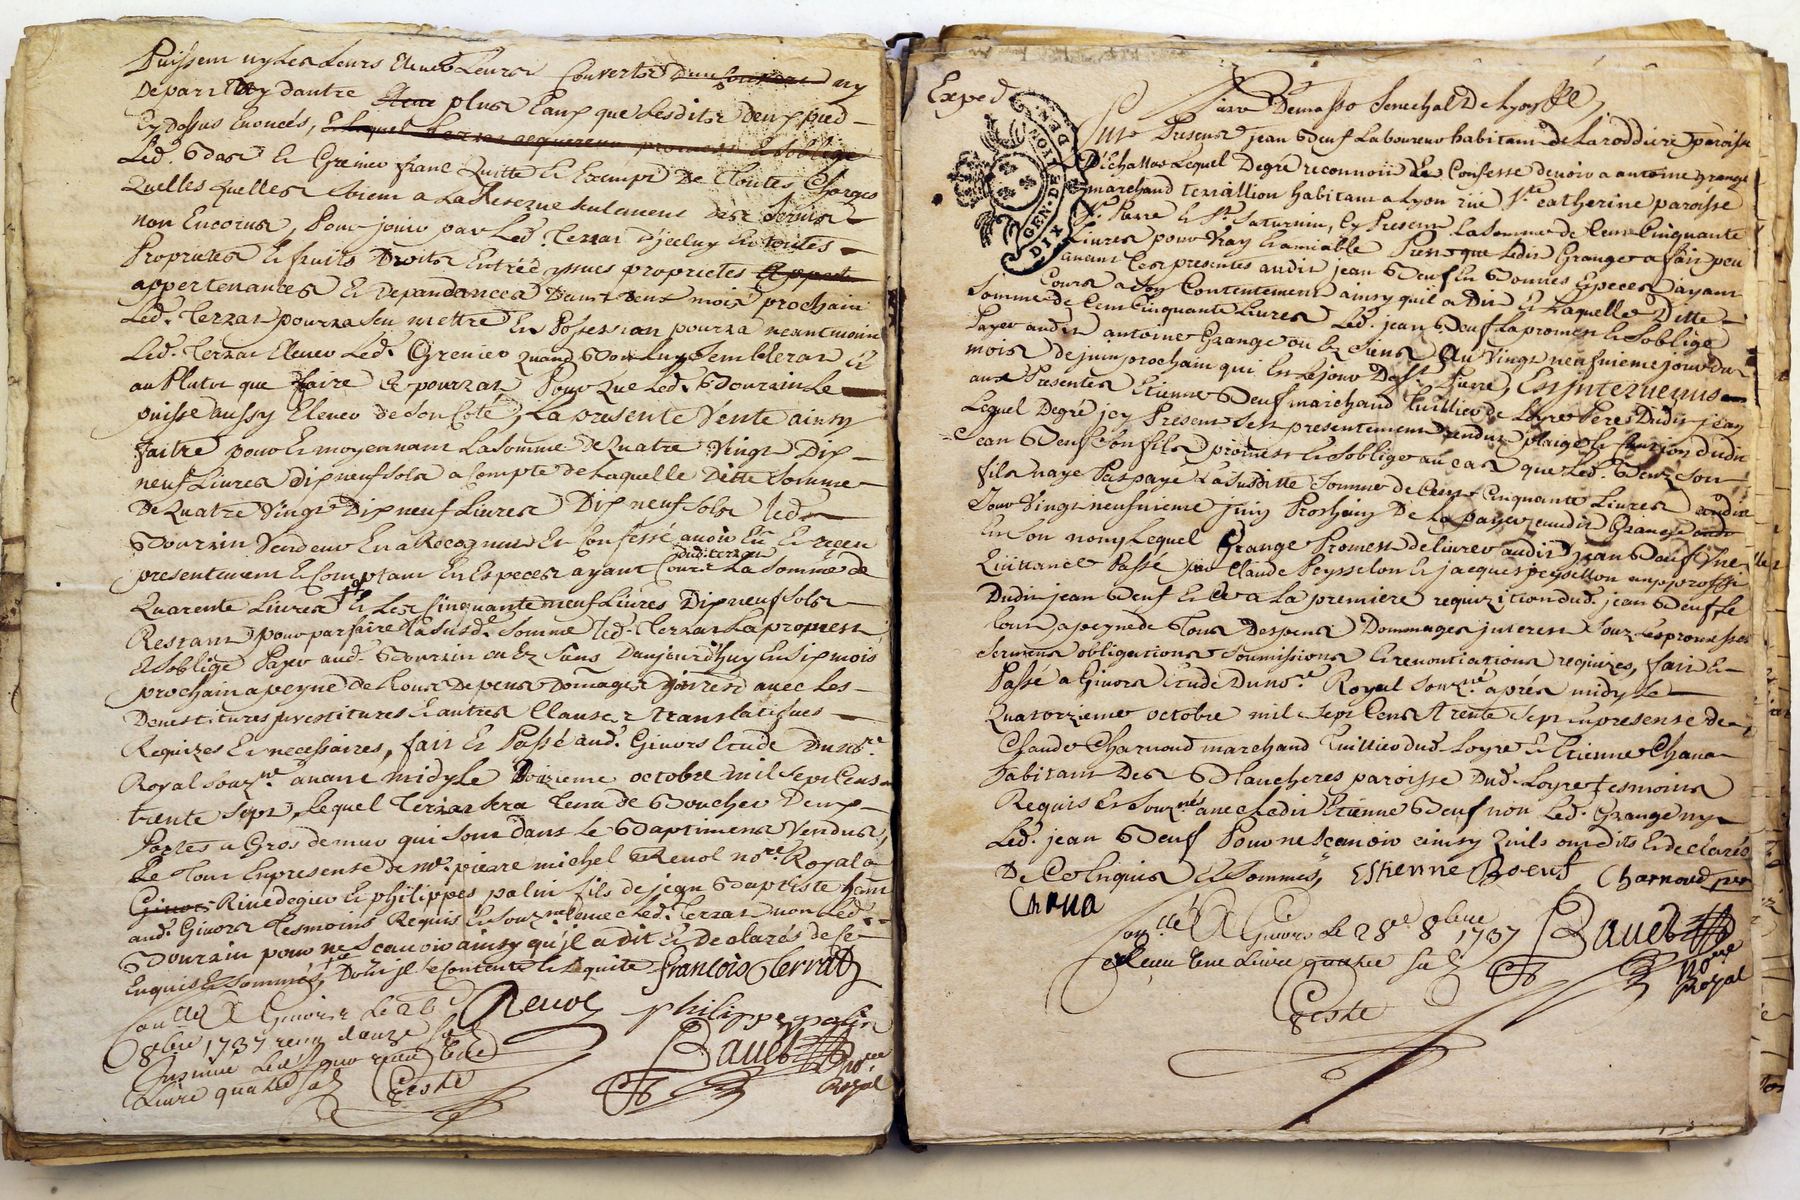 Puissent ny les Leurs Elever Leurs Couvertes d'une ny
De part ny dautre plus haut que Lesdits deux pied
Cy dessus Enoncés,
Led. Bas Et Grenier franc Quitte Et Exempt De Toutes Charges
Quelles quelles Soient a La Reserve Seulement Des Servis
non Encorus, Pour jouir par Led. Terrat Djceluy En toutes
Proprietes Et fruits Droits Entrées yssues proprietes
appertenances Et Dependances Dans deux mois prochain
Led. Terrat pourra Seu mettre En Possession pourra neantmoins
Led. Terrat Elever Led. Grenier quand Bon Luy Semblerat Et
au Plutot que faire Ce pourrat Pour que Led. Bourrin Le
puisse aussy Elever de Son Coté, La presente Vente ainsy
faitte pour Et moyennant La Somme De Quatre Vingt Dix
neuf Livres dix neuf sols a Compte de Laquelle Ditte Somme
De Quatre Vingt Dix neuf Livres Dix neuf Sols led.
Bourrin Vendeur En a Recognu Et Confessé avoir Eu Et receu
dud. terrat
presentement Et Comptant En Especes ayant Cours La Somme de
Quarente Livres Et Les Cinquante neuf Livres Dix neuf Sols
Restant pour parfaire La Susd.e Somme led. Terrat La promest
Et Soblige Payer aud. Bourrin ou Ez Siens Daujourdhuy En Six mois
prochain a peyne de Tous Depens Domages Jnterest avec Les
Devestitures jnvestitures Et autres Clauses translatifves
Requizes Et necessaires, fait Et Passé aud. Givors Etude Du no.re
Royal Souz.né avant midy Le Douzieme octobre mil Sept Cens
trente Sept, Lequel Terrat Sera Tenu de Boucher Deux
Portes a Gros de mur qui Sont dans Le Baptiment Vendus,
Le Tout En presense de m.e pierre michel Revol no.re Royal a
Rivedegier Et philippes palin fils de jean Baptiste
aud. Givors Tesmoins Requis Et Souz.nés avec Led. Terrat non Led.
Bourrin pour ne Scavoir ainsy qu'jl a dit Et Declaré de Ce
Enquis Et Sommé, Dont jl Se Contente Et Quitte françois terrat
Revol philippe palin
Con.llé A Givors Le 26
8bre 1737 receu douze s.
Livre quatre s. Teste
Bauet no.re
Royal
Exped
Pardevant Senechal De Lyon
Fut Present jean Beuf Laboureur habitant de La roddiere paroisse
D'Echallas Lequel Degré reconnoit Et Confesse devoir a antoine grange
marchand terraillion habitant a Lyon rüe S.te catherine paroisse
S.t Pierre Et S.t Saturnin, Cy Present La Somme de Cent Cinquante
Livres pour Vray Et amiable Prest que Ledit Grange a fait peu
avant Ces presentes audit jean Beuf En Bonnes Especes ayant
Cours a Son Contentement ainsy quil a Dit Et Laquelle Ditte
Somme de Cent Cinquante Livres Led. jean Beuf La promest Et Soblige
Payer audit antoine Grange ou Ez Siens Au Vingt neufvieme jour du
mois de juin prochain qui Est Le jour De S.t Pierre, En Jntervenus
aux Presentes Etienne Beuf marchand Tuillier de Loyre Pere Dudit jean
Lequel Degré jcy Present Sest presentement rendu plaige Et Caution dudit
jean Beuf Son fils promest Et Soblige au cas que Led. Beuf Son
fils naye Pas payé La Susditte Somme de Cent Cinquante Livres
Jour Vingt neufvieme juin Prochain De la payer audit Grange
En Son nom, Lequel Grange Promest delivrer audit jean Beuf Une
Quittance Passé par Claude Peysselon Et jacques peysselon au proffit
Dudit jean Beuf Et Ce a La premiere requizition dud. jean Beuf Le
Tout a peyne de Tous Despens Dommages jnterest Souz Les promesses
Sermens obligations Soumissions Et renontiations requizes, fait Et
Passé a Givors Etude Du no.re Royal Souz.né aprés midy Le
Quatorzieme octobre mil Sept Cens trente Sept En presense de
Claude Charnoud marchand Tuillier dud. Loyre Et Etienne Chana
habitant Des Blancheres paroisse Dud. Loyre Tesmoins
Requis Et Souz.nés avec Ledit Etienne Beuf non Led. Grange ny
Led. jean Beuf Pour ne Scavoir ainsy Quils ont dits Et declarés
De Ce Enquis Et Sommés, Estienne Boeuf Charnoud
Chana
Con.llé A Givors Le 28.e 8bre 1737 Bauet
Receu Une Livre quatre s. no.re
Royal
Teste
GEN. DE LYON
DIX DEN.